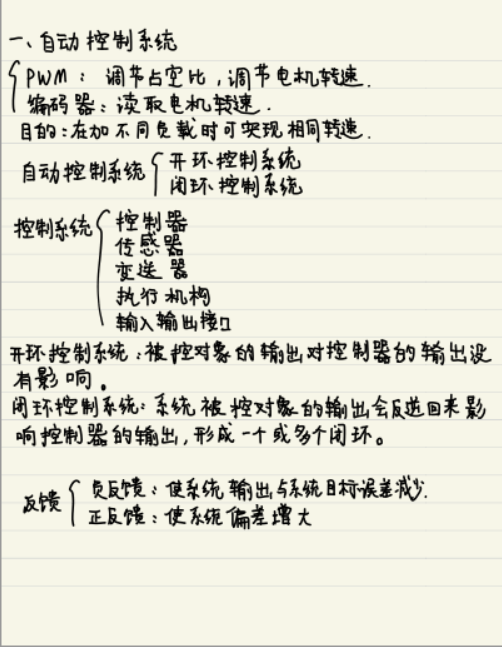 一、自动控制系统
PWM：调节占空比，调节电机转速.
编码器：读取电机转速.
目的：在加不同负载时可实现相同转速.
自动控制系统 开环控制系统
闭环控制系统
控制系统 控制器
传感器
变送器
执行机构
输入输出接口
开环控制系统：被控对象的输出对控制器的输出没
有影响。
闭环控制系统：系统被控对象的输出会反送回来影
响控制器的输出，形成一个或多个闭环。
反馈 负反馈：使系统输出与系统目标误差减少.
正反馈：使系统偏差增大